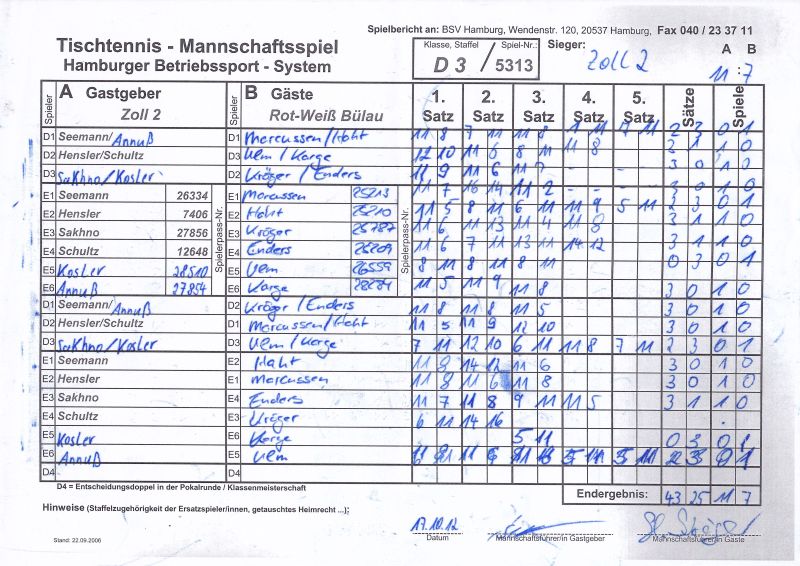 Spielbericht an: BSV Hamburg, Wendenstr. 120, 20537 Hamburg, Fax 040 / 23 37 11
Tischtennis - Mannschaftsspiel
Hamburger Betriebssport - System
Klasse, Staffel Spiel-Nr.:
D 3 / 5313
Sieger: Zoll 2
A B
11 : 7
Spieler A Gastgeber Spieler B Gäste 1. Satz 2. Satz 3. Satz 4. Satz 5. Satz Sätze Spiele
Zoll 2 Rot-Weiß Bülau
D1 Seemann/Annuß D1 Marcussen/Haht 11 8 7 11 11 8 4 11 7 11 2 3 0 1
D2 Hensler/Schultz D3 Ulm / Karge 12 10 11 6 8 11 11 8 3 1 1 0
D3 Sakhno/Kosler D2 Kröger / Enders 11 9 11 6 11 7 3 0 1 0
E1 Seemann 26334 E1 Marcussen 25213 11 7 16 14 11 2 - - 3 0 1 0
E2 Hensler 7406 E2 Haht 25210 11 5 8 11 6 11 11 9 5 11 2 3 0 1
E3 Sakhno 27856 E3 Kröger 25787 11 6 11 13 11 4 11 8 3 1 1 0
E4 Schultz 12648 E4 Enders 25209 11 6 7 11 13 11 14 12 3 1 1 0
E5 Kosler 28510 E5 Ulm 26559 8 11 8 11 8 11 0 3 0 1
E6 Annuß 27854 E6 Karge 11 5 11 9 11 8 3 0 1 0
Spielerpass-Nr. Spielerpass-Nr.
D1 Seemann/Annuß D2 Kröger / Enders 11 8 11 8 11 5 3 0 1 0
D2 Hensler/Schultz D1 Marcussen/Haht 11 5 11 9 12 10 3 0 1 0
D3 Sakhno/Kosler D3 Ulm / Karge 7 11 12 10 6 11 11 8 5 11 2 3 0 1
E1 Seemann E2 Haht 11 8 14 12 11 6 3 0 1 0
E2 Hensler E1 Marcussen 11 8 11 6 11 8 3 0 1 0
E3 Sakhno E4 Enders 11 7 11 8 9 11 11 5 3 1 1 0
E4 Schultz E3 Kröger 6 11 14 16
E5 Kosler E6 Karge 5 11 0 3 0 1
E6 Annuß E5 Ulm
D4 D4
D4 = Entscheidungsdoppel in der Pokalrunde / Klassenmeisterschaft
Endergebnis: 43 25 11 7
Hinweise (Staffelzugehörigkeit der Ersatzspieler/innen, getauschtes Heimrecht ...);
17.10.12
Stand: 22.09.2006 Datum Mannschaftsführer/in Gastgeber Mannschaftsführer/in Gäste